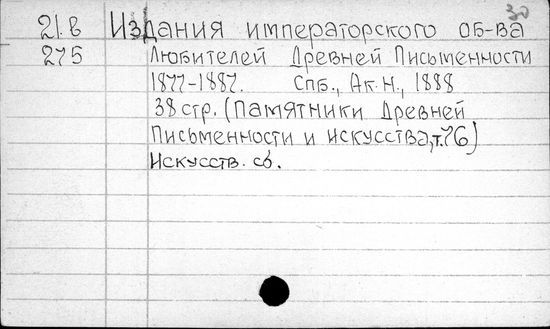 30
21.В Издания императорского об-ва
275 Любителей Древней Письменности
1877-1887. Спб., Ак.Н., 1888
38 стр. (Памятники Древней
Письменности и искусства, т.76)
Искусств. сб.